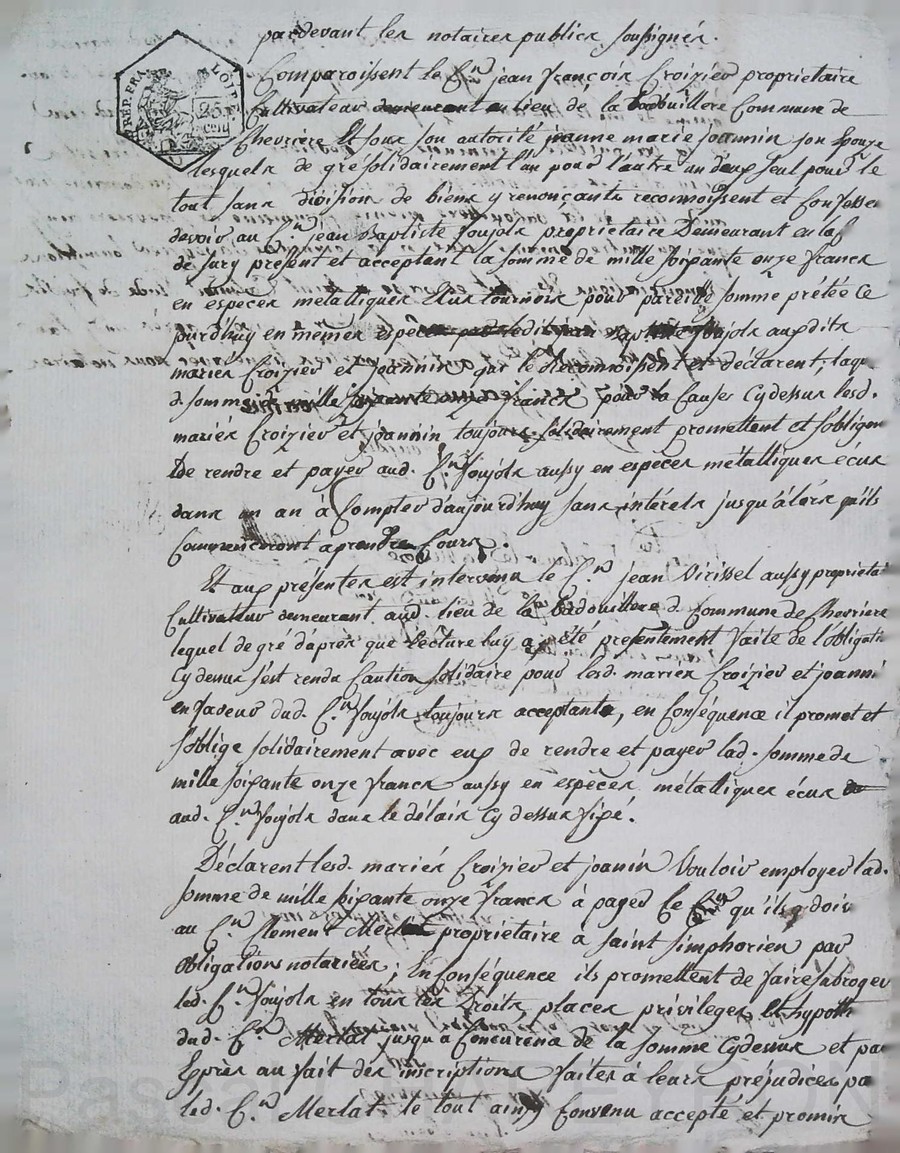 pardevant les notaires publics soussignés.
REP. FRA. LOIRE 25 cent
Comparoissent le C.en jean françois Croizier proprietaire
Cultivateur demeurant au lieu de la Commune de
Chevriere Et sous son autorité jeanne marie joannin son Epouze
lesquels de gré solidairement l'un pour l'autre un deux seul pour le
tout sans division de biens y renonçants reconnoissent et Confessent
devoir au C.en jean Baptiste Soujols proprietaire Demeurant en la
de Sury présent et acceptant la somme de mille soixante onze francs
en especes métalliques Ecus tournois pour pareille somme prêtée Ce
jourd'huy en mêmes espèces Soujols auxdits
mariés Croizier et joannin qui le Reconnoissent et déclarent; laq.
d. somme de mille soixante onze francs pour la Cause Cy dessus lesd.
mariés Croizier et joannin toujours solidairement promettent et s'obligent
De rendre et payer aud. C.en Soujols aussy en espèces métalliques écus
dans un an à Compter d'aujourd'huy sans intérets jusqu'àlors qu'ils
Commenceront à prendre Cours.
Et aux présentes est intervenu le C.en jean Virissel aussy proprietai
Cultivateur demeurant aud. lieu de la d. Commune de Chevriere
lequel de gré d'après que Lecture luy a été présentement faite de l'obligation
Cy dessus s'est rendu Caution solidaire pour lesd. mariés Croizier et joanni
en faveur dud. C.en Soujols toujours acceptant, en Conséquence il promet et
s'oblige solidairement avec eux de rendre et payer lad. somme de
mille soixante onze francs aussy en espèces métalliques écus
aud. C.en Soujols dans le délais Cy dessus fixé.
Déclarent lesd. mariés Croizier et joanin Vouloir employer lad.
somme de mille soixante onze francs à payer le qu'ils doiv
au C.en Clement Merlat propriétaire à saint simphorien par
obligations notariées; En Conséquence ils promettent de faire subroger
led. C.en Soujols en tous les Droits, places privileges et hypoth
dud. C.en Merlat jusqu'à Concurence de la somme Cy dessus et par
Exprès au fait des inscriptions faites à leurs préjudices pa
led. C.en Merlat. le tout ainsy Convenu accepté et promis